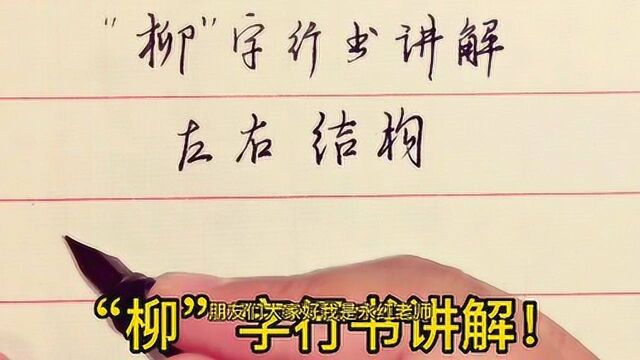 “柳”字行书讲解
左右结构
朋友们大家好我是永红老师
“柳”字行书讲解！